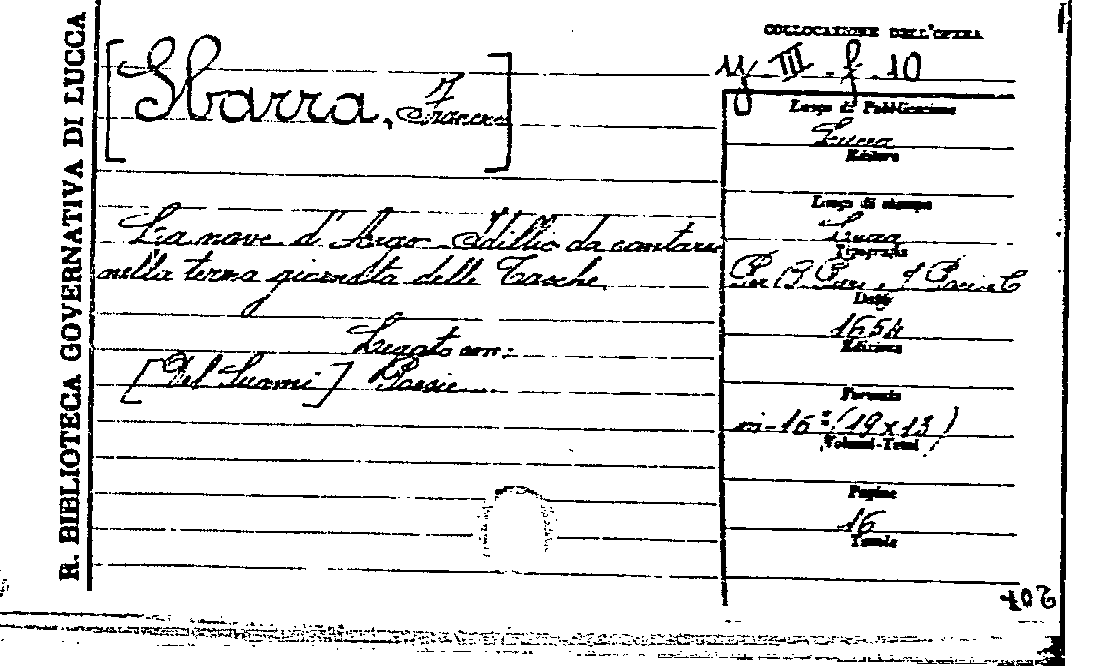 R. BIBLIOTECA GOVERNATIVA DI LUCCA
[Sbarra, Francesco]
La nave d'Argo Idillio da cantarsi
nella terza giornata delle Tasche.
Legato con:
[Del Suarni] Poesie...
COLLOCAZIONE DELL'OPERA
III. f. 10
Luogo di Pubblicazione
Lucca
Editore
Luogo di stampa
Lucca
Tipografia
Per B Pieri, e I Paci e C
Data
1654
Edizione
Formato
in-16º (19x13)
Volumi-Tomi
Pagine
16
Tavole
207